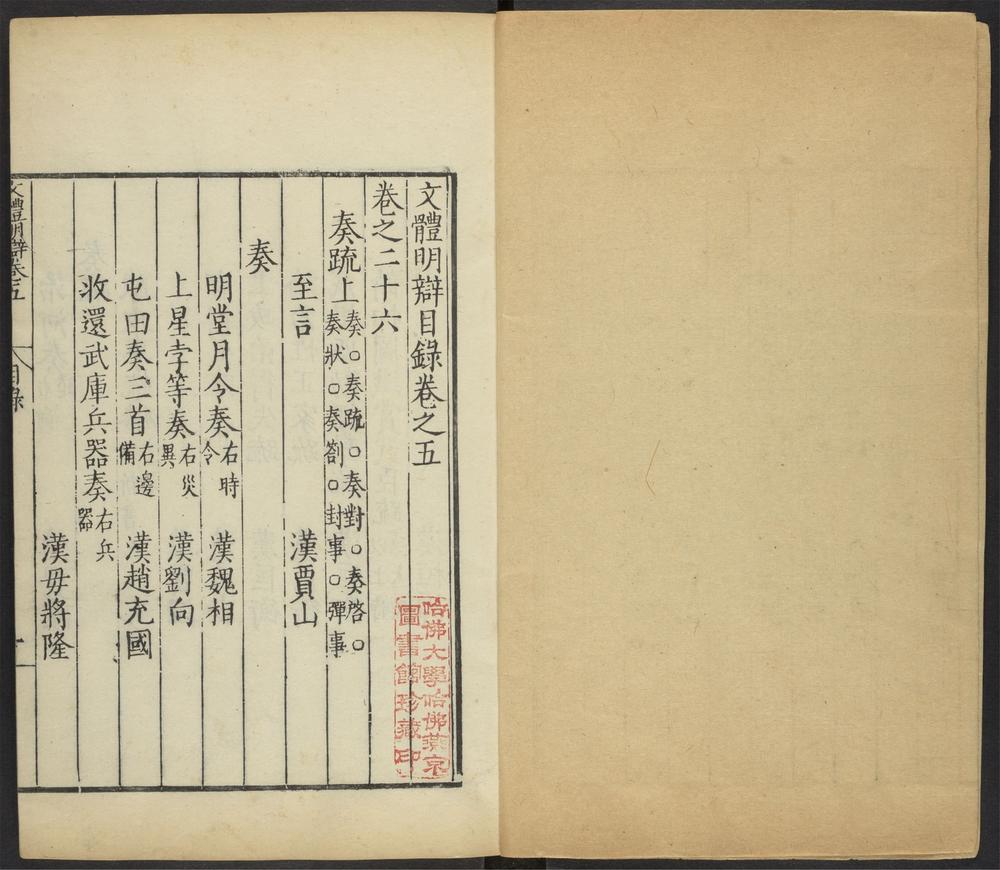 文體明辯目錄卷之五
卷之二十六
奏疏上奏○奏疏○奏對○奏啓○
奏狀○奏劄○封事○彈事
至言 漢賈山
奏
明堂月令奏右時令 漢魏相
上星孛等奏右災異 漢劉向
屯田奏三首右邊備 漢趙充國
收還武庫兵器奏右兵器
漢毋將隆
文體明辯卷五 目錄 一
哈佛大學哈佛燕京
圖書館珍藏印